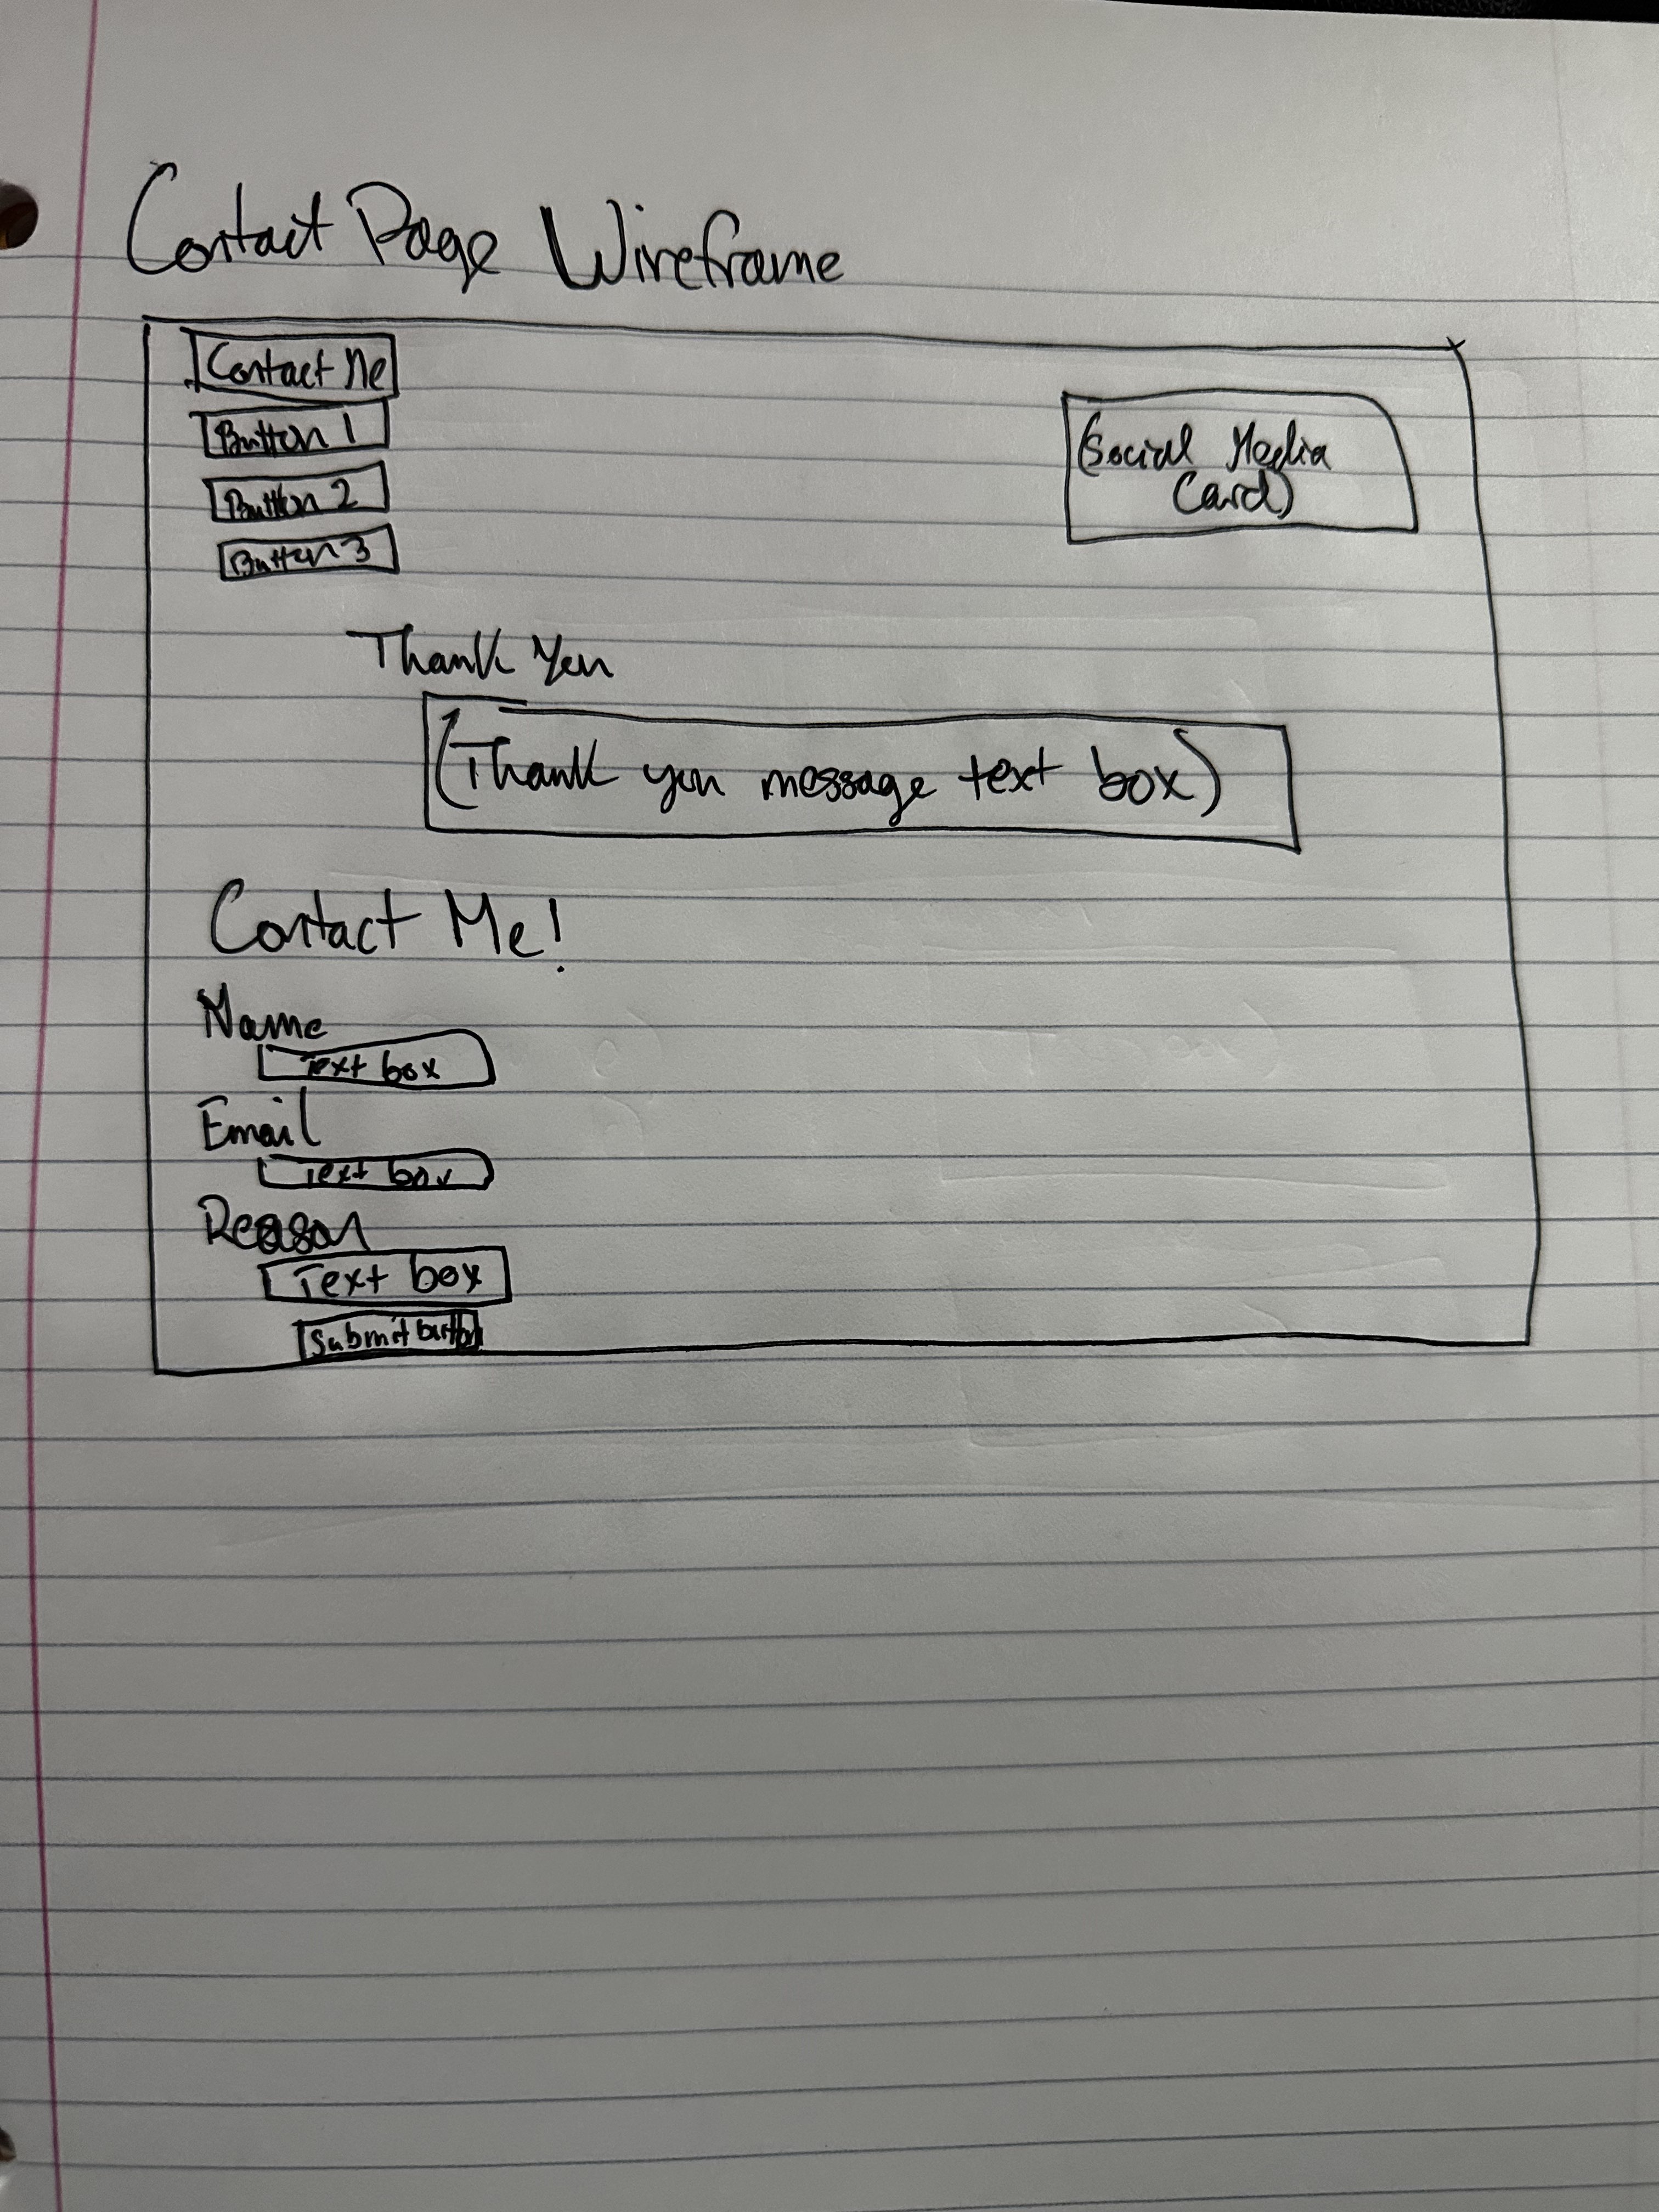 Contact Page Wireframe
Contact Me
Button 1
Button 2
Button 3
(Social Media
Card)
Thank You
(Thank you message text box)
Contact Me!
Name
Text box
Email
Text box
Reason
Text box
Submit button